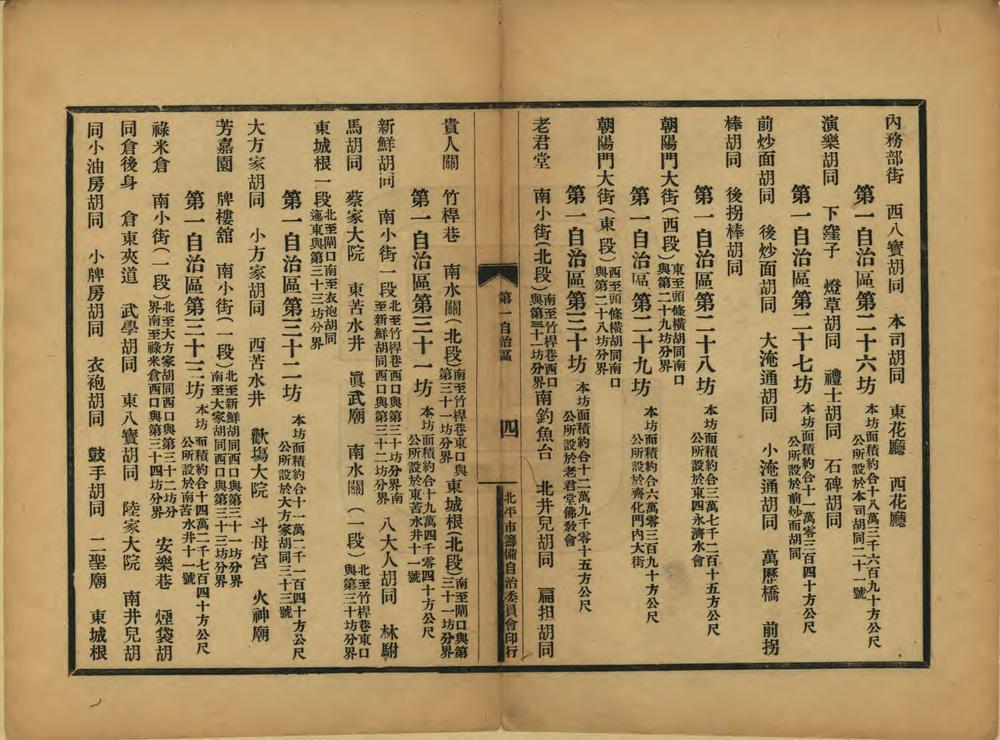 內務部街　西八寶胡同　本司胡同　東花廳　西花廳
第一自治區第二十六坊　本坊面積約合十八萬三千六百九十方公尺　公所設於本司胡同二十一號
演樂胡同　下窪子　燈草胡同　禮士胡同　石碑胡同
第一自治區第二十七坊　本坊面積約合十一萬零三百四十方公尺　公所設於前炒面胡同
前炒面胡同　後炒面胡同　大淹通胡同　小淹通胡同　萬歷橋　前拐
棒胡同　後拐棒胡同
第一自治區第二十八坊　本坊面積約合三萬七千二百十五方公尺　公所設於東四永濟水會
朝陽門大街（西段）東至頭條橫胡同南口與第二十九坊分界
第一自治區第二十九坊　本坊面積約合六萬零三百九十方公尺　公所設於齊化門內大街
朝陽門大街（東段）西至頭條橫胡同南口與第二十八坊分界
第一自治區第三十坊　本坊面積約合十二萬九千零十五方公尺　公所設於老君堂佛教會
老君堂　南小街（北段）南至竹桿巷西口與第三十一坊分界　南釣魚台　北井兒胡同　扁担胡同
第一自治區　四　北平市籌備自治委員會印行
貴人關　竹桿巷　南水關（北段）南至竹桿巷東口與第三十一坊分界　東城根（北段）南至閘口與第三十一坊分界
第一自治區第三十一坊　本坊面積約合十九萬四千零四十方公尺　公所設於東苦水井十一號
新鮮胡同　南小街一段北至竹桿巷西口與第三十坊分界南至新鮮胡同西口與第三十二坊分界　八大人胡同　林駙
馬胡同　蔡家大院　東苦水井　眞武廟　南水關（一段）北至竹桿巷東口與第三十坊分界
東城根一段北至閘口南至衣袍胡同迤東與第三十三坊分界
第一自治區第三十二坊　本坊面積約合十一萬二千一百四十方公尺　公所設於大方家胡同三十三號
大方家胡同　小方家胡同　西苦水井　歡塲大院　斗母宮　火神廟
芳嘉園　牌樓舘　南小街（一段）北至新鮮胡同西口與第三十一坊分界南至大家胡同西口與第三十三坊分界
第一自治區第三十三坊　本坊面積約合十四萬二千七百四十方公尺　公所設於南苦水井十一號
祿米倉　南小街（一段）北至大方家胡同西口與第三十二坊分界南至祿米倉西口與第三十四坊分界　安樂巷　煙袋胡
同倉後身　倉東夾道　武學胡同　東八寶胡同　陸家大院　南井兒胡
同小油房胡同　小牌房胡同　衣袍胡同　鼓手胡同　二聖廟　東城根